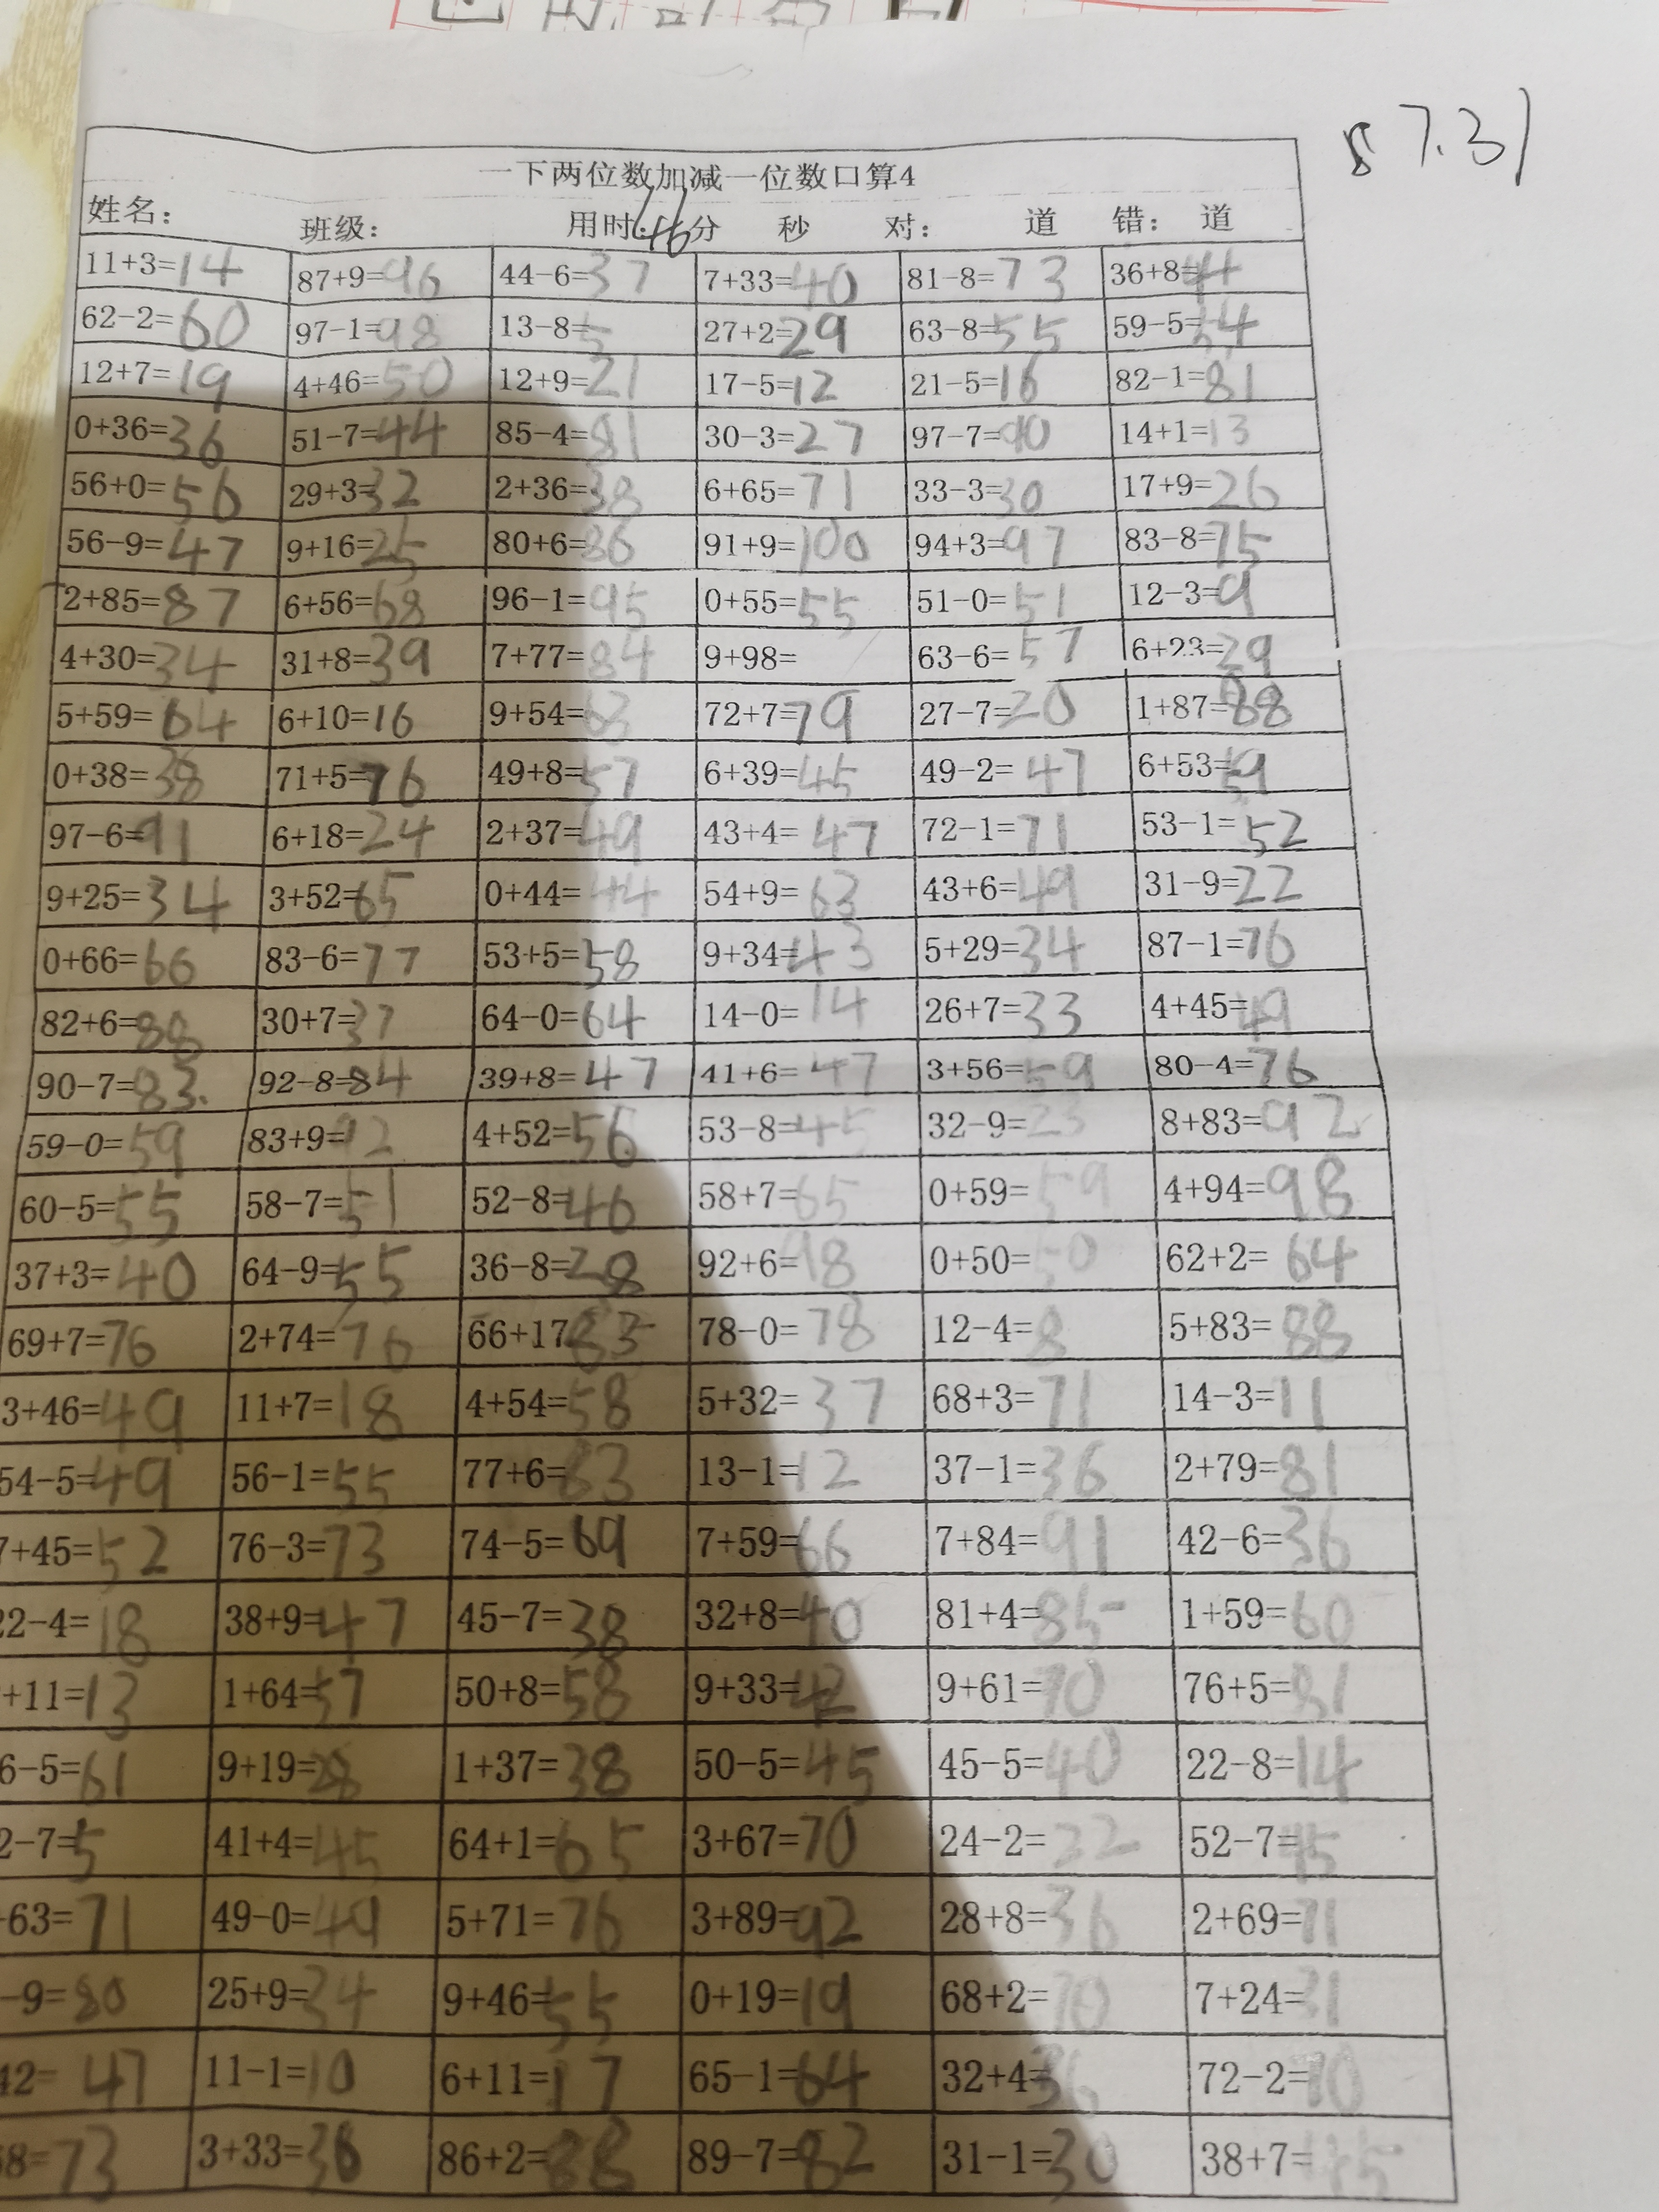 8 7.31
一下两位数加减一位数口算4
姓名： 班级： 用时：46分 秒 对： 道 错： 道
11+3=14 87+9=96 44-6=37 7+33=40 81-8=73 36+8=44
62-2=60 97-1=98 13-8=5 27+2=29 63-8=55 59-5=54
12+7=19 4+46=50 12+9=21 17-5=12 21-5=16 82-1=81
0+36=36 51-7=44 85-4=81 30-3=27 97-7=90 14+1=13
56+0=56 29+3=32 2+36=38 6+65=71 33-3=30 17+9=26
56-9=47 9+16=25 80+6=86 91+9=100 94+3=97 83-8=75
2+85=87 6+56=68 96-1=95 0+55=55 51-0=51 12-3=9
4+30=34 31+8=39 7+77=84 9+98= 63-6=57 6+23=29
5+59=64 6+10=16 9+54=63 72+7=79 27-7=20 1+87=88
0+38=38 71+5=76 49+8=57 6+39=45 49-2=47 6+53=59
97-6=91 6+18=24 2+37=49 43+4=47 72-1=71 53-1=52
9+25=34 3+52=65 0+44=44 54+9=63 43+6=49 31-9=22
0+66=66 83-6=77 53+5=58 9+34=43 5+29=34 87-1=76
82+6=88 30+7=37 64-0=64 14-0=14 26+7=33 4+45=49
90-7=83. 92-8=84 39+8=47 41+6=47 3+56=59 80-4=76
59-0=59 83+9=92 4+52=56 53-8=45 32-9=23 8+83=92
60-5=55 58-7=51 52-8=46 58+7=65 0+59=59 4+94=98
37+3=40 64-9=55 36-8=28 92+6=98 0+50=50 62+2=64
69+7=76 2+74=76 66+17 83 78-0=78 12-4=8 5+83=88
3+46=49 11+7=18 4+54=58 5+32=37 68+3=71 14-3=11
54-5=49 56-1=55 77+6=83 13-1=12 37-1=36 2+79=81
7+45=52 76-3=73 74-5=69 7+59=66 7+84=91 42-6=36
22-4=18 38+9=47 45-7=38 32+8=40 81+4=85 1+59=60
+11=13 1+64=57 50+8=58 9+33=42 9+61=70 76+5=81
6-5=61 9+19=28 1+37=38 50-5=45 45-5=40 22-8=14
2-7=5 41+4=45 64+1=65 3+67=70 24-2=22 52-7=45
+63=71 49-0=49 5+71=76 3+89=92 28+8=36 2+69=71
-9=80 25+9=34 9+46=55 0+19=19 68+2=70 7+24=31
42=47 11-1=10 6+11=17 65-1=64 32+4=36 72-2=70
8=73 3+33=36 86+2=88 89-7=82 31-1=30 38+7=45